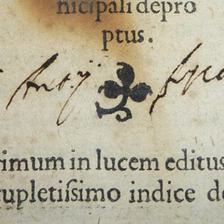 nicipali depro
ptus.
rimum in lucem editus
cupletiſsimo indice d